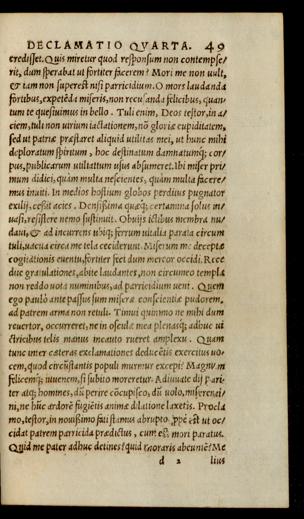 DECLAMATIO QVARTA. 49
credisset. Quis miretur quod responsum non contempse/
rit, dum sperabat ut fortiter facerem? Mori me non uult,
& tam non superest nisi parricidium. O mors laudanda
fortibus, expetēda miseris, non recusanda felicibus, quan/
tum te quesiuimus in bello. Tuli enim, Deos testor, in a/
ciem, tuli non utrium iactationem, nō gloriæ cupiditatem,
sed ut patriæ præstaret aliquid utilitas mei, ut hunc mihi
deploratum spiritum, hoc destinatum damnatumq; cor/
pus, publicarum utilitatum usus absumeret. Ibi miser pri/
mum didici, quàm multa nescientes, quàm multa facere/
mus inuiti. In medios hostium globos perditus pugnator
exilij, cessit acies. Densissima quæq; certamina solus in/
uasi, resistere nemo sustinuit. Obuijs ictibus membra nu/
daui, & ad incurrens utiq; ferrum uitalia parata circum
tuli, uacua circa me tela ceciderunt. Miserum me deceptæ
cogitationis euentu, fortiter feci dum mercor occidi. Rece
dite gratulationes, abite laudantes, non circumeo templa
non reddo uota numinibus, ad parricidium ueni. Quem
ego paulò ante passus sum miseræ conscientiæ pudorem,
ad patrem arma non retuli. Timui quinimo ne mihi dum
reuertor, occurreret, ne in oscula mea plenasq; adhuc ui
ctricibus telis manus incauto rueret amplexu. Quam
tunc inter cæteras exclamationes deducētis exercitus uo/
cem, quod circūstantis populi murmur excepi? Magnum
felicemq; iuuenem, si subito moreretur. Adiuuate dij pari/
ter atq; homines, dū perire cōcupisco, dū uolo, miseremi/
ni, ne hūc ardorē fugiētis animæ dilatione laxetis. Procla
mo, testor, in nouissimo fati stamus abrupto, ꝓpè est ut oc/
cidat patrem parricida prædictus, cum est mori paratus.
Quid me pater adhuc detines? quid moraris abeuntē? Me
d 2 lius